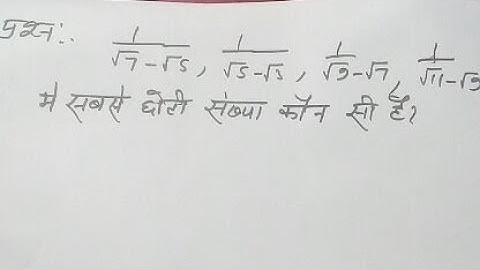 प्रश्न:. 1/(√7-√5), 1/(√5-√3), 1/(√9-√7), 1/(√11-√9)
मे सबसे छोटी संख्या कौन सी है?